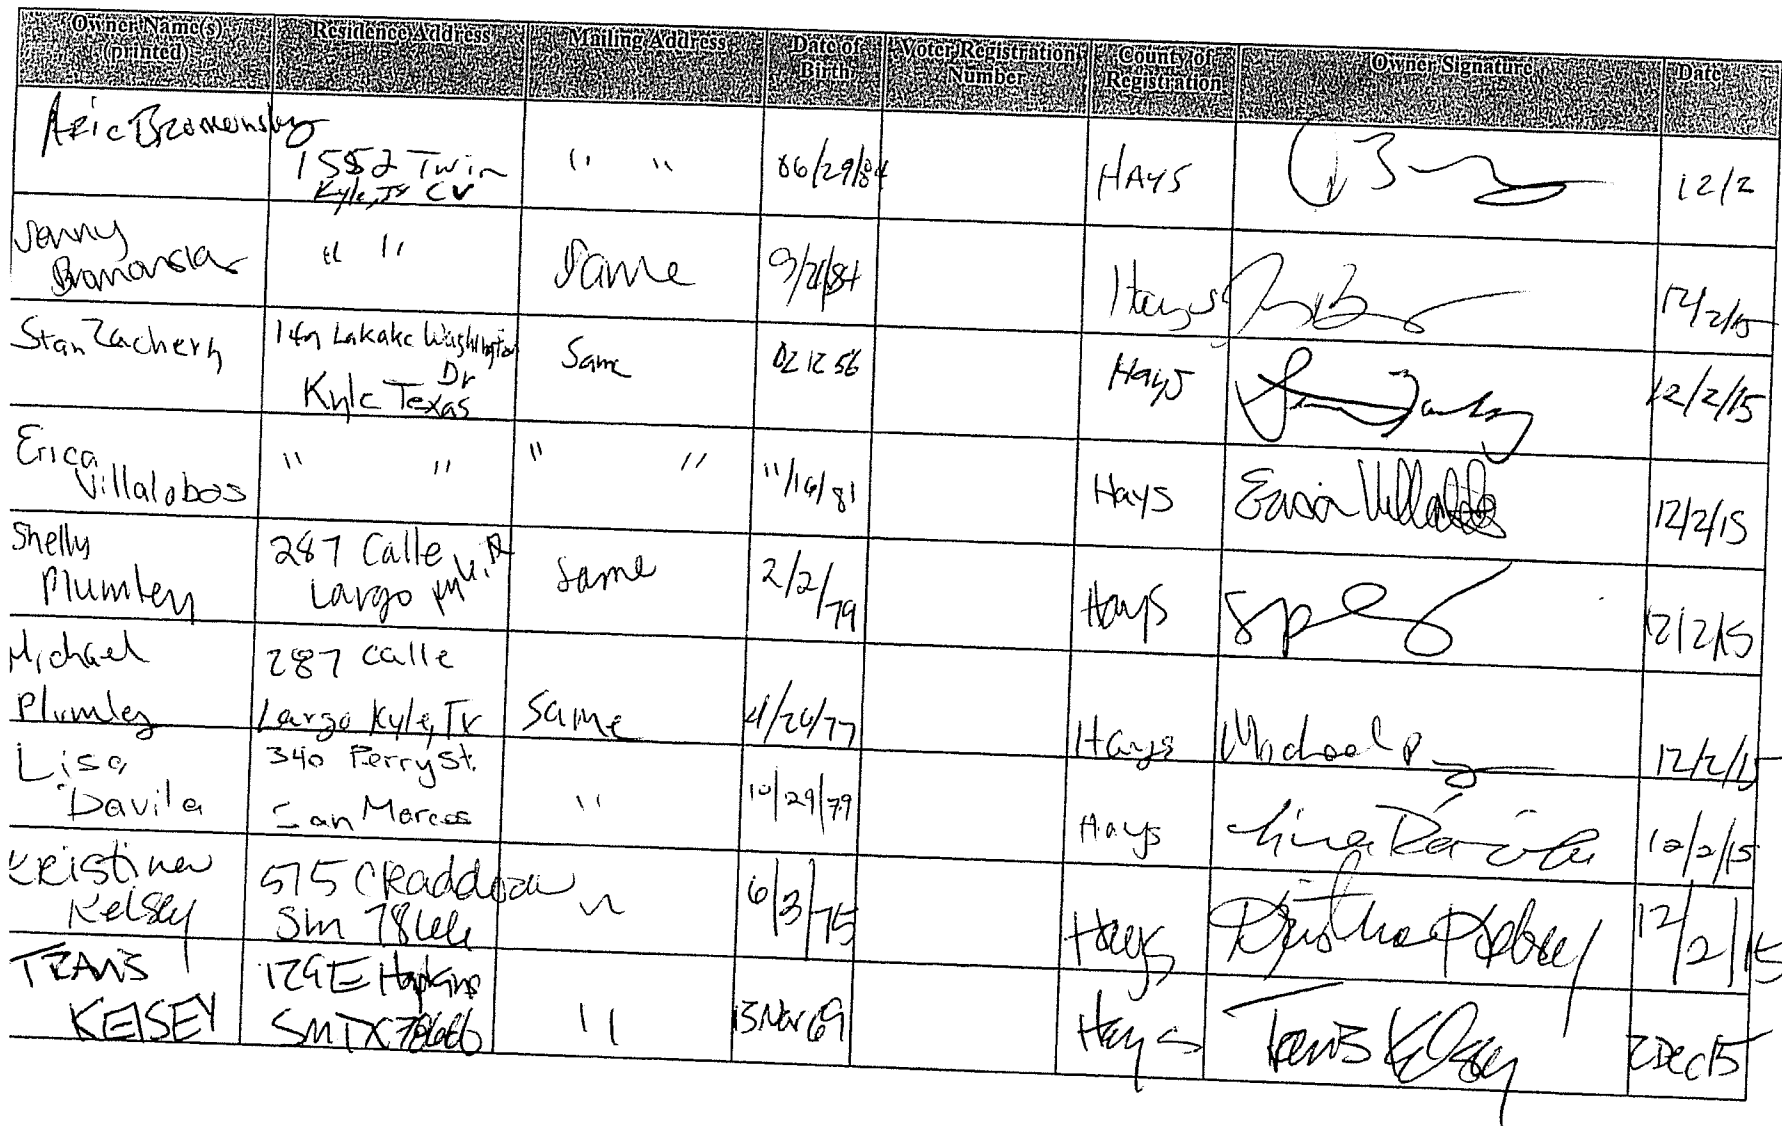 Owner Name(s) (printed) Residence Address Mailing Address Date of Birth Voter Registration Number County of Registration Owner Signature Date
Aric 1552 Twin CV Kyle, TX " " 06/29/84 HAYS 12/2
Jenny " " Same 9/21/84 Hays 12/2/15
Stan Zachery Washington Dr Kyle Texas Same 02 12 56 Hays 12/2/15
Erica Villalobos " " " " 11/16/81 Hays Erica Villalobos 12/2/15
Shelly Plumley 287 Calle Largo Same 2/2/79 Hays 12/2/15
Michael Plumley 287 Calle Largo Kyle, Tx Same /26/77 Hays Michael P 12/2/15
Lisa Davila 340 Perry St. San Marcos " 10/29/79 Hays Lisa Davila 12/2/15
Kristina Kelsey 575 Sm 78666 " 6/3/75 Hays Kristina Kelsey 12/2/15
KELSEY 129 E Hopkins SM TX 78666 " 13 Nov 69 Hays Travis Kelsey 2 Dec 15